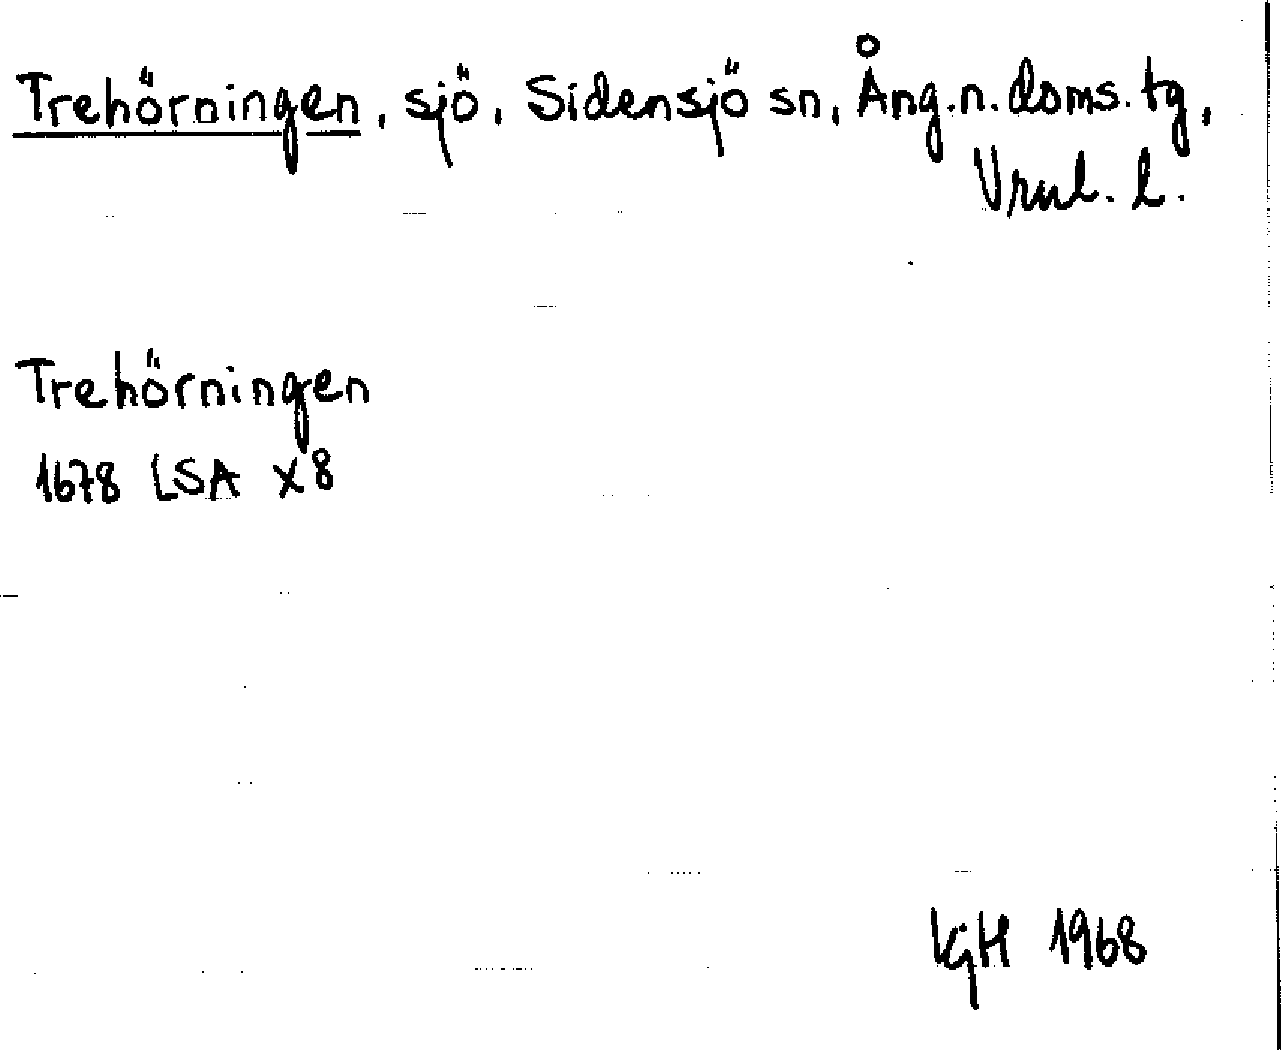 Trehörningen, sjö, Sidensjö sn, Ång.n.doms.tg,
Vrnl. l.
Trehörningen
1678 LSA X8
KGH 1968